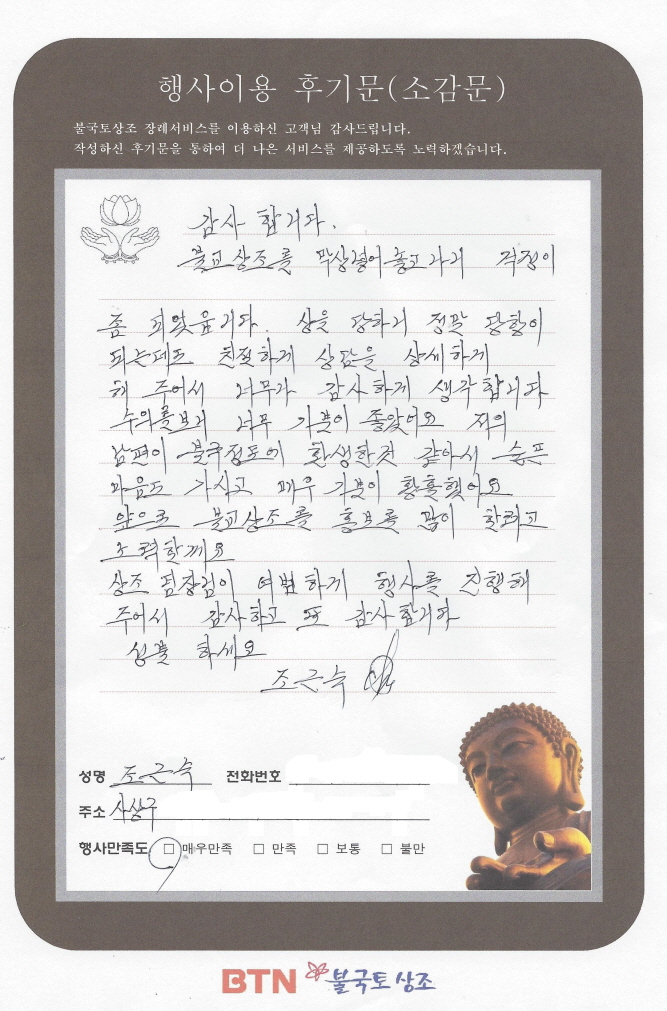 행사이용 후기문(소감문)
불국토상조 장례서비스를 이용하신 고객님 감사드립니다.
작성하신 후기문을 통하여 더 나은 서비스를 제공하도록 노력하겠습니다.
감사 합니다.
불교상조를 막상넣어놓고나니 걱정이
좀 되었읍니다. 상을 당하니 정말 당황이
되는데도 친절하게 상담을 상세하게
해 주어서 너무나 감사하게 생각합니다
수의를보니 너무 기분이 좋았어요 저의
남편이 불국정토에 환생한것 같아서 슬픈
마음도 가시고 매우 기분이 황홀했어요
앞으로 불교상조를 홍보를 많이 할려고
노력할께요
상조 팀장님이 여법하게 행사를 진행해
주어서 감사하고 또 감사합니다
성불 하세요
조근숙
성명 조근숙 전화번호
주소 사상구
행사만족도 □ 매우만족 □ 만족 □ 보통 □ 불만
BTN 불국토상조